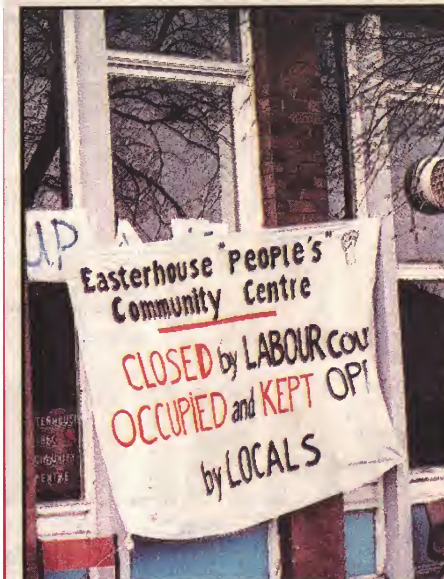 UP
Easterhouse "PEOPLE'S"
Community Centre
CLOSED by LABOUR COU
OCCUPIED and KEPT OP
by LOCALS
CENTRE